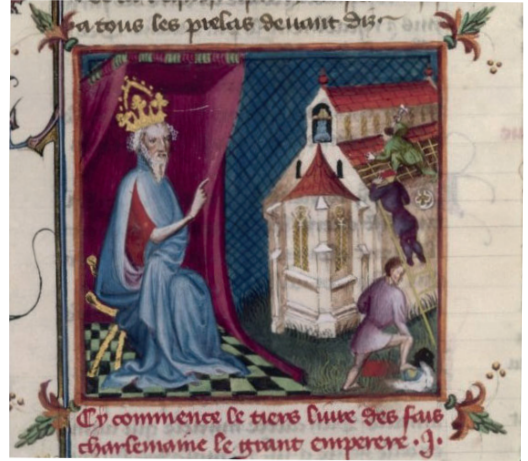 a tous les prelas deuant diz
Cy commence le tiers liure des fais
charlemaine le grant emperere . J .